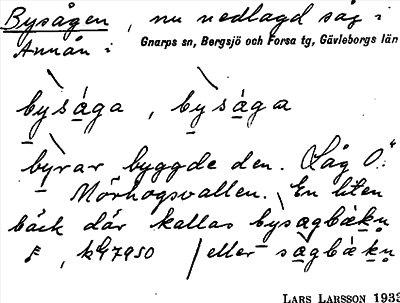 Bysågen, nu nedlagd såg i
Annån i Gnarps sn, Bergsjö och Forsa tg, Gävleborgs län
bysåga, bysåga
byrar byggde den. Låg Ö.
Mörhogsvallen. En liten
bäck där kallas bysagbækn
eller sagbækn
LARS LARSSON 1933